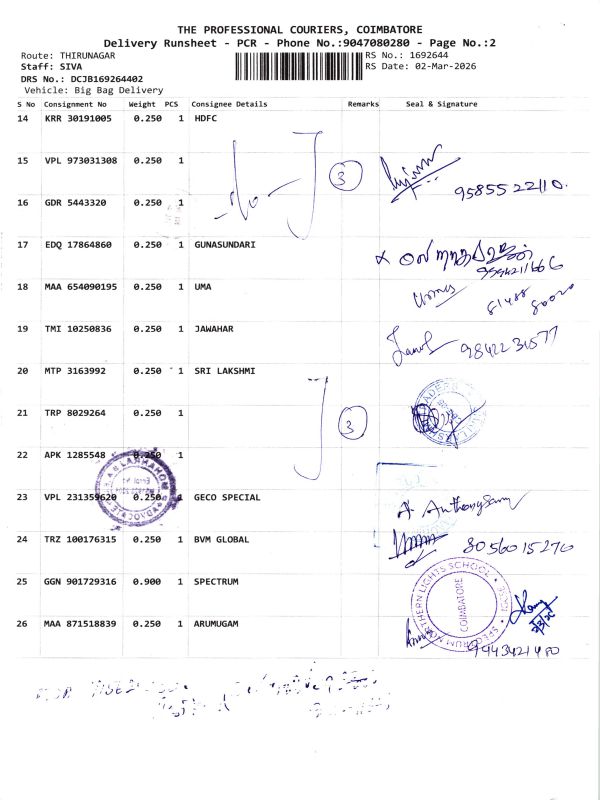 THE PROFESSIONAL COURIERS, COIMBATORE
Delivery Runsheet - PCR - Phone No.:9047080280 - Page No.:2
Route: THIRUNAGAR
RS No.: 1692644
Staff: SIVA
RS Date: 02-Mar-2026
DRS No.: DCJB169264402
Vehicle: Big Bag Delivery
S No Consignment No Weight PCS Consignee Details Remarks Seal & Signature
14 KRR 30191005 0.250 1 HDFC
15 VPL 973031308 0.250 1
3
9585522110.
16 GDR 5443320 0.250 1
17 EDQ 17864860 0.250 1 GUNASUNDARI
18 MAA 654090195 0.250 1 UMA
19 TMI 10250836 0.250 1 JAWAHAR
20 MTP 3163992 0.250 1 SRI LAKSHMI
21 TRP 8029264 0.250 1
3
22 APK 1285548 0.250 1
23 VPL 231359620 0.250 1 GECO SPECIAL
A. Anthonysamy
24 TRZ 100176315 0.250 1 BVM GLOBAL
8056015270
25 GGN 901729316 0.900 1 SPECTRUM
SPECTRUM NORTHERN LIGHTS SCHOOL
COIMBATORE
26 MAA 871518839 0.250 1 ARUMUGAM
9443421400